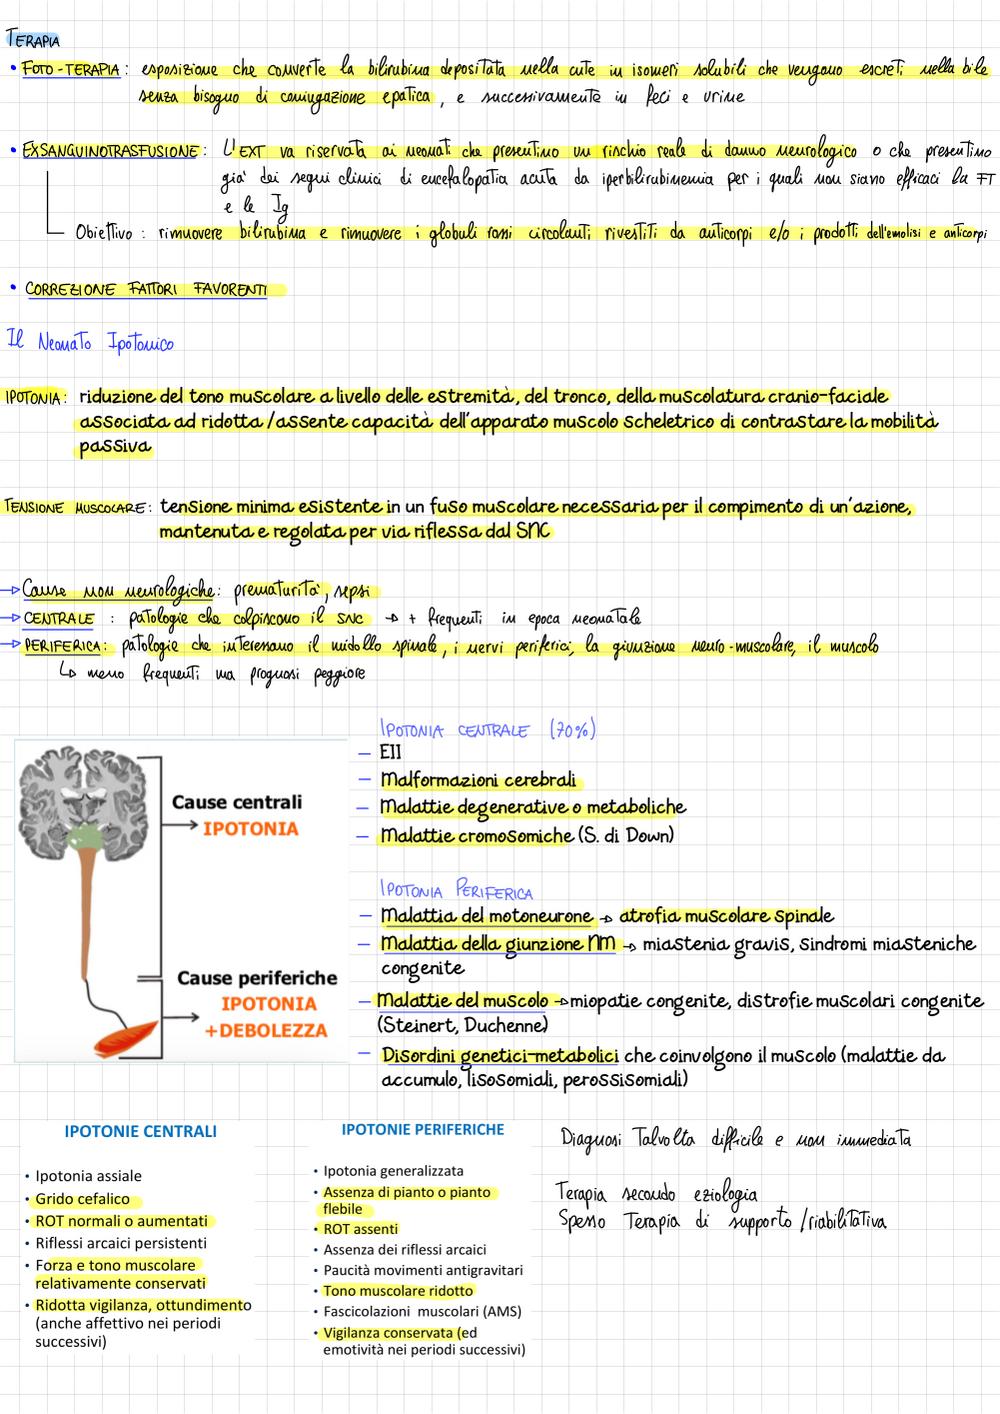 TERAPIA
• FOTO-TERAPIA: esposizione che converte la bilirubina depositata nella cute in isomeri solubili che vengono escreti nella bile
senza bisogno di coniugazione epatica, e successivamente in feci e urine
• EXSANGUINOTRASFUSIONE: L'EXT va riservata ai neonati che presentino un rischio reale di danno neurologico o che presentino
già dei segni clinici di encefalopatia acuta da iperbilirubinemia per i quali non siano efficaci la FT
e le Ig
Obiettivo: rimuovere bilirubina e rimuovere i globuli rossi circolanti rivestiti da anticorpi e/o i prodotti dell'emolisi e anticorpi
• CORREZIONE FATTORI FAVORENTI
Il Neonato Ipotonico
IPOTONIA: riduzione del tono muscolare a livello delle estremità, del tronco, della muscolatura cranio-faciale
associata ad ridotta /assente capacità dell'apparato muscolo scheletrico di contrastare la mobilità
passiva
TENSIONE MUSCOLARE: tensione minima esistente in un fuso muscolare necessaria per il compimento di un'azione,
mantenuta e regolata per via riflessa dal SNC
→ Cause non neurologiche: prematurità, sepsi
→ CENTRALE: patologie che colpiscono il SNC → + frequenti in epoca neonatale
→ PERIFERICA: patologie che interessano il midollo spinale, i nervi periferici, la giunzione neuro-muscolare, il muscolo
↳ meno frequenti ma prognosi peggiore
Cause centrali
→ IPOTONIA
Cause periferiche
→ IPOTONIA
+DEBOLEZZA
IPOTONIA CENTRALE (70%)
– EII
– Malformazioni cerebrali
– Malattie degenerative o metaboliche
– Malattie cromosomiche (S. di Down)
IPOTONIA PERIFERICA
– Malattia del motoneurone → atrofia muscolare spinale
– Malattia della giunzione NM → miastenia gravis, sindromi miasteniche
congenite
– Malattie del muscolo → miopatie congenite, distrofie muscolari congenite
(Steinert, Duchenne)
– Disordini genetici-metabolici che coinvolgono il muscolo (malattie da
accumulo, lisosomiali, perossisomiali)
IPOTONIE CENTRALI
• Ipotonia assiale
• Grido cefalico
• ROT normali o aumentati
• Riflessi arcaici persistenti
• Forza e tono muscolare
relativamente conservati
• Ridotta vigilanza, ottundimento
(anche affettivo nei periodi
successivi)
IPOTONIE PERIFERICHE
• Ipotonia generalizzata
• Assenza di pianto o pianto
flebile
• ROT assenti
• Assenza dei riflessi arcaici
• Paucità movimenti antigravitari
• Tono muscolare ridotto
• Fascicolazioni muscolari (AMS)
• Vigilanza conservata (ed
emotività nei periodi successivi)
Diagnosi Talvolta difficile e non immediata
Terapia secondo eziologia
Spesso Terapia di supporto /riabilitativa